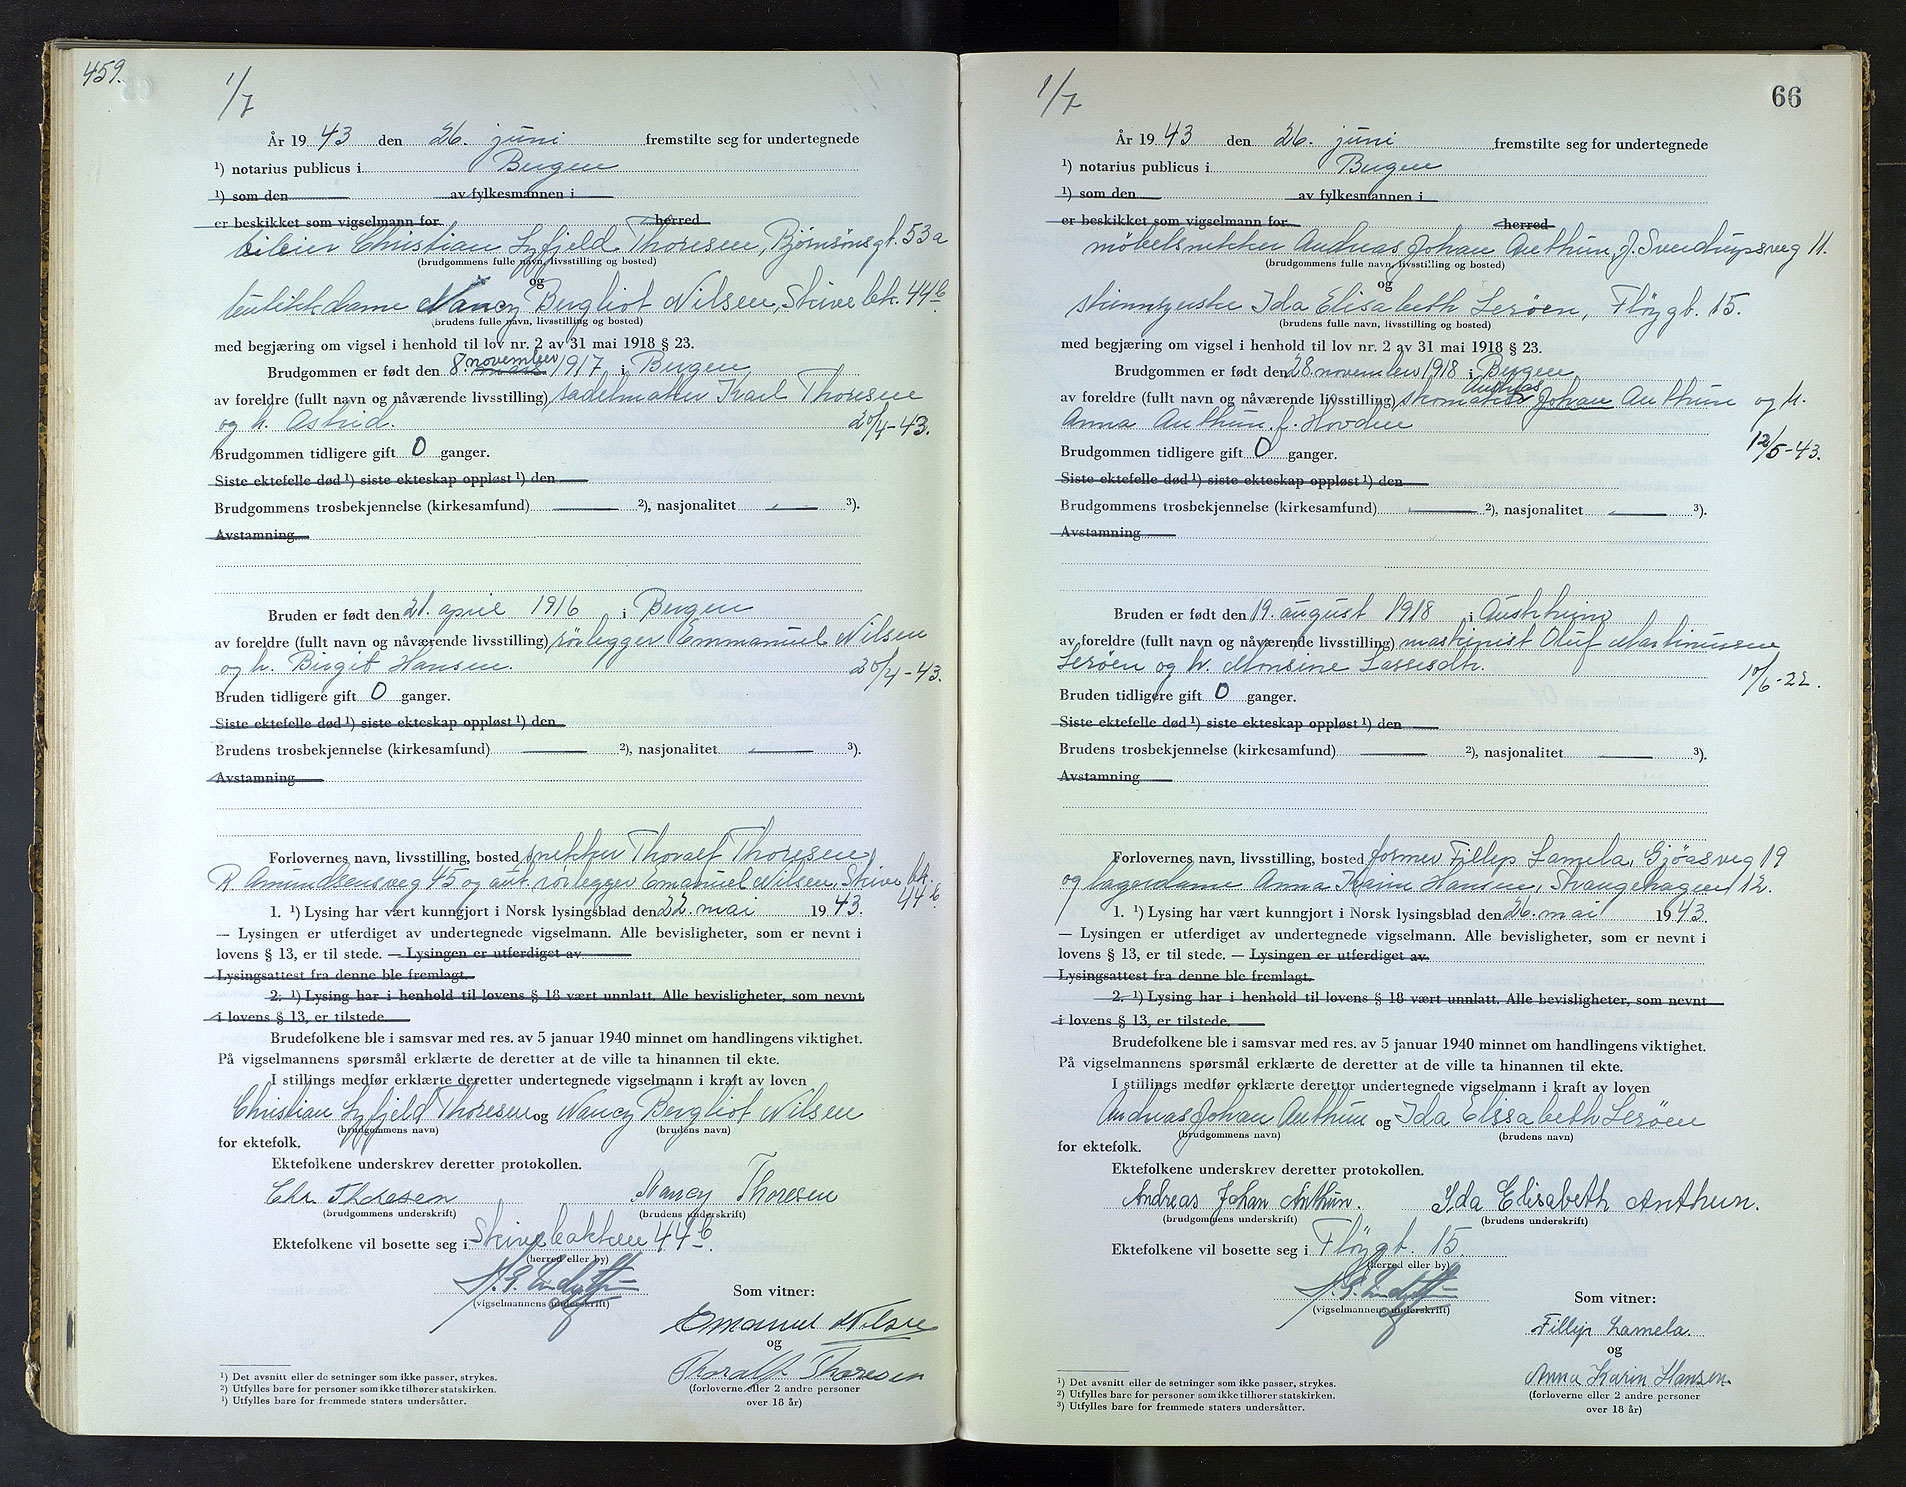 459.
1/7
År 1943 den 26. juni fremstilte seg for undertegnede
¹) notarius publicus i Bergen
¹) som den av fylkesmannen i
er beskikket som vigselmann for herred
bileier Christian Lyfjeld Thoresen, Bjørnsönsgt. 53a
(brudgommens fulle navn, livsstilling og bosted)
og
butikkdame Nancy Bergliot Nilsen, Skivebk. 44b
(brudens fulle navn, livsstilling og bosted)
med begjæring om vigsel i henhold til lov nr. 2 av 31 mai 1918 § 23.
Brudgommen er født den 8. mars november 1917 i Bergen
av foreldre (fullt navn og nåværende livsstilling) sadelmaker Karl Thoresen
og h. Astrid. 20/4-43.
Brudgommen tidligere gift 0 ganger.
Siste ektefelle død ¹) siste ekteskap oppløst ¹) den
Brudgommens trosbekjennelse (kirkesamfund) ²), nasjonalitet ³).
Avstamning
Bruden er født den 21. april 1916 i Bergen
av foreldre (fullt navn og nåværende livsstilling) rörlegger Emmanuel Nilsen
og h. Birgit Hansen. 20/4-43.
Bruden tidligere gift 0 ganger.
Siste ektefelle død ¹) siste ekteskap oppløst ¹) den
Brudens trosbekjennelse (kirkesamfund) ²), nasjonalitet ³).
Avstamning
Forlovernes navn, livsstilling, bosted snekker Thoralf Thoresen,
R Amundsensveg 45 og aut. rörlegger Emanuel Nilsen, Skivebk. 44b.
1. ¹) Lysing har vært kunngjort i Norsk lysingsblad den 22. mai 1943.
— Lysingen er utferdiget av undertegnede vigselmann. Alle bevisligheter, som er nevnt i
lovens § 13, er til stede. — Lysingen er utferdiget av
Lysingsattest fra denne ble fremlagt.
2. ¹) Lysing har i henhold til lovens § 18 vært unnlatt. Alle bevisligheter, som nevnt
i lovens § 13, er tilstede.
Brudefolkene ble i samsvar med res. av 5 januar 1940 minnet om handlingens viktighet.
På vigselmannens spørsmål erklærte de deretter at de ville ta hinannen til ekte.
I stillings medfør erklærte deretter undertegnede vigselmann i kraft av loven
Christian Lyfjeld Thoresen og Nancy Bergliot Nilsen
(brudgommens navn) (brudens navn)
for ektefolk.
Ektefolkene underskrev deretter protokollen.
Chr. Thoresen Nancy Thoresen
(brudgommens underskrift) (brudens underskrift)
Ektefolkene vil bosette seg i Skivebakken 44b.
(herred eller by)
(vigselmannens underskrift)
Som vitner:
Emanuel Nilsen
og
Thoralf Thoresen
(forloverne eller 2 andre personer
over 18 år)
¹) Det avsnitt eller de setninger som ikke passer, strykes.
²) Utfylles bare for personer som ikke tilhører statskirken.
³) Utfylles bare for fremmede staters undersåtter.
66
1/7
År 1943 den 26. juni fremstilte seg for undertegnede
¹) notarius publicus i Bergen
¹) som den av fylkesmannen i
er beskikket som vigselmann for herred
möbelsnekker Andreas Johan Anthun, J. Sverdrupsveg 11.
(brudgommens fulle navn, livsstilling og bosted)
og
skinnsyerske Ida Elisabeth Leröen, Flöygt. 15.
(brudens fulle navn, livsstilling og bosted)
med begjæring om vigsel i henhold til lov nr. 2 av 31 mai 1918 § 23.
Brudgommen er født den 28 november 1918 i Bergen
av foreldre (fullt navn og nåværende livsstilling) skomaker Johan Andreas Anthun og h.
Anna Anthun f. Hovden 12/5-43.
Brudgommen tidligere gift 0 ganger.
Siste ektefelle død ¹) siste ekteskap oppløst ¹) den
Brudgommens trosbekjennelse (kirkesamfund) ²), nasjonalitet ³).
Avstamning
Bruden er født den 19. august 1918 i Austrheim
av foreldre (fullt navn og nåværende livsstilling) maskinist Oluf Martinussen
Leröen og h. Monsine Lassesdtr. 10/6-22.
Bruden tidligere gift 0 ganger.
Siste ektefelle død ¹) siste ekteskap oppløst ¹) den
Brudens trosbekjennelse (kirkesamfund) ²), nasjonalitet ³).
Avstamning
Forlovernes navn, livsstilling, bosted former Fillip Lamela, Gjöasveg 19
og lagerdame Anna Karin Hansen, Strangehagen 12.
1. ¹) Lysing har vært kunngjort i Norsk lysingsblad den 26. mai 1943.
— Lysingen er utferdiget av undertegnede vigselmann. Alle bevisligheter, som er nevnt i
lovens § 13, er til stede. — Lysingen er utferdiget av
Lysingsattest fra denne ble fremlagt.
2. ¹) Lysing har i henhold til lovens § 18 vært unnlatt. Alle bevisligheter, som nevnt
i lovens § 13, er tilstede.
Brudefolkene ble i samsvar med res. av 5 januar 1940 minnet om handlingens viktighet.
På vigselmannens spørsmål erklærte de deretter at de ville ta hinannen til ekte.
I stillings medfør erklærte deretter undertegnede vigselmann i kraft av loven
Andreas Johan Anthun og Ida Elisabeth Leröen
(brudgommens navn) (brudens navn)
for ektefolk.
Ektefolkene underskrev deretter protokollen.
Andreas Johan Anthun. Ida Elisabeth Anthun.
(brudgommens underskrift) (brudens underskrift)
Ektefolkene vil bosette seg i Flöygt. 15.
(herred eller by)
(vigselmannens underskrift)
Som vitner:
Fillip Lamela.
og
Anna Karin Hansen.
(forloverne eller 2 andre personer
over 18 år)
¹) Det avsnitt eller de setninger som ikke passer, strykes.
²) Utfylles bare for personer som ikke tilhører statskirken.
³) Utfylles bare for fremmede staters undersåtter.